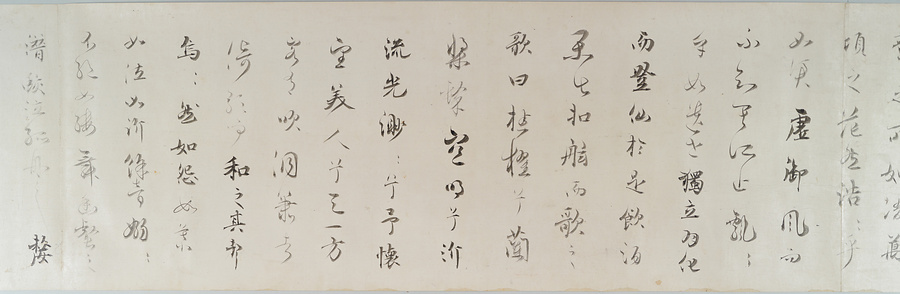 之所如凌萬
頃之茫然浩〻乎
如馮虛御風而
不知其所止飄〻
乎如遺世獨立羽化
而登仙於是飲酒
樂甚扣舷而歌之
歌曰桂櫂兮蘭
槳擊空明兮泝
流光渺〻兮予懷
望美人兮天一方
客有吹洞簫者
倚歌而和之其聲
嗚〻然如怨如慕
如泣如泝餘音嫋〻
不絕如縷舞幽壑之
潛蛟泣孤舟之嫠